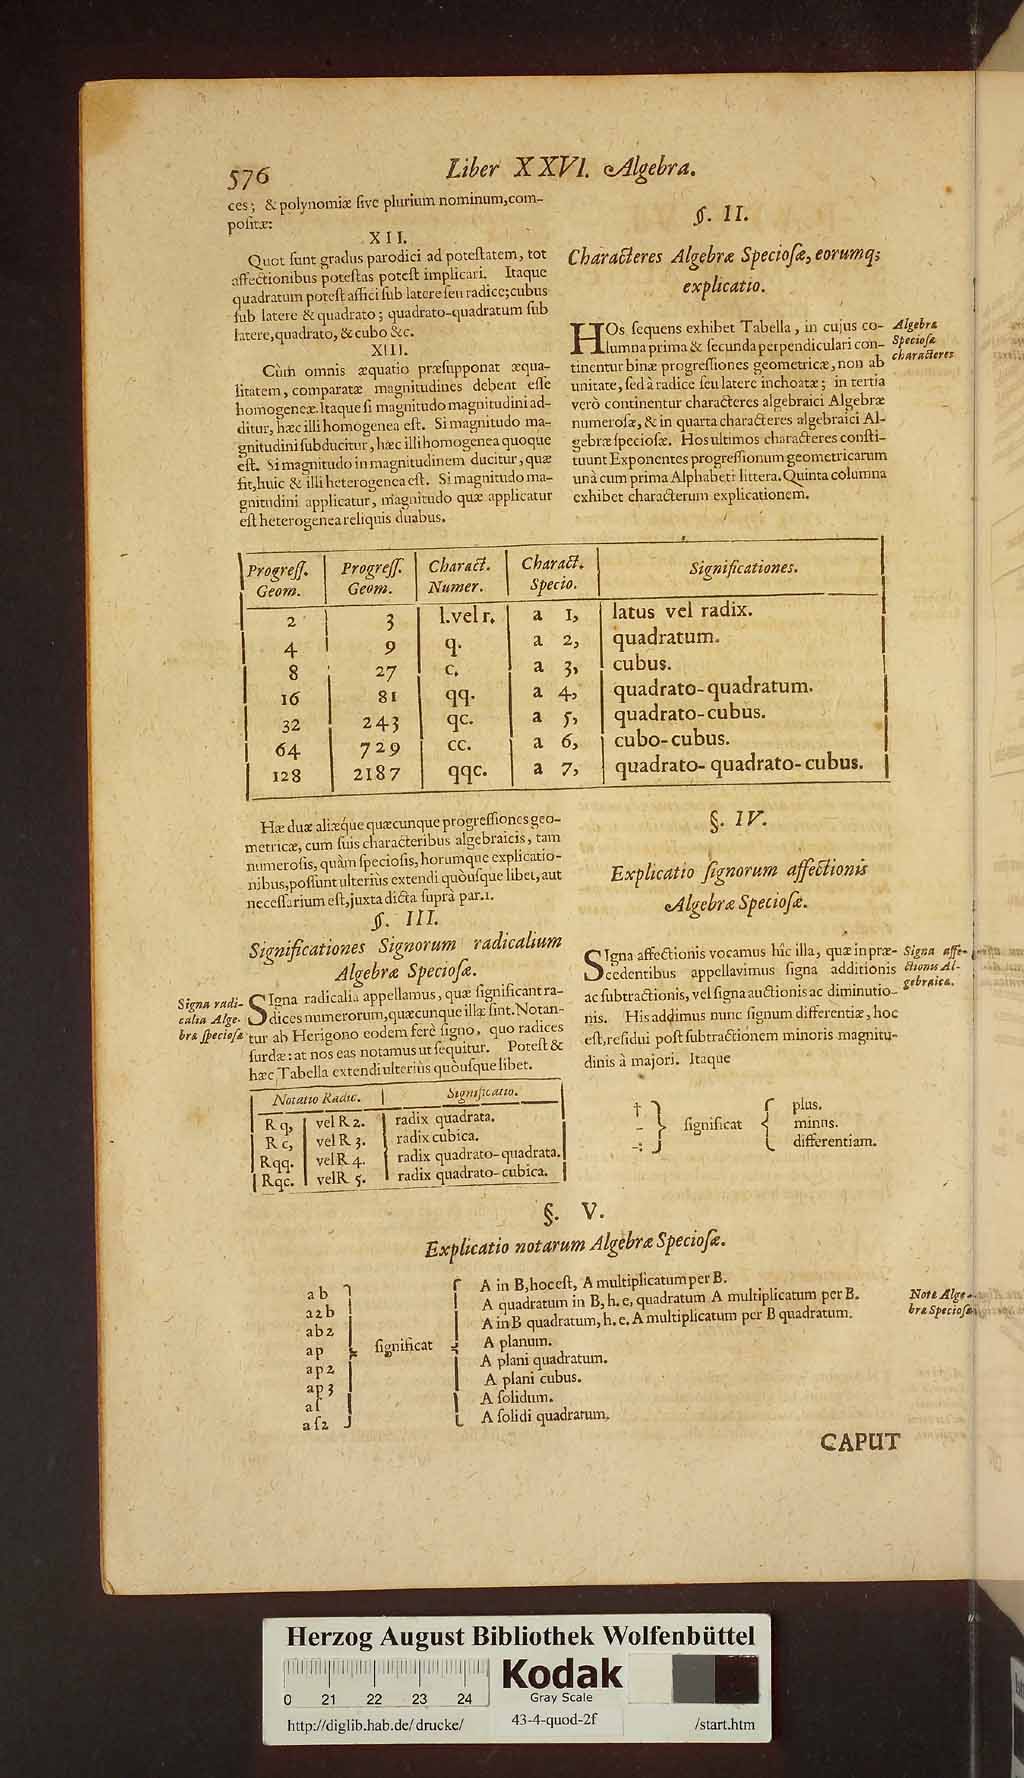 576
Liber XXVI. Algebra.
ces; & polynomiæ ſive plurium nominum, com-
poſitæ:
XII.
Quot ſunt gradus parodici ad poteſtatem, tot
affectionibus poteſtas poteſt implicari. Itaque
quadratum poteſt affici ſub latere ſeu radice; cubus
ſub latere & quadrato; quadrato-quadratum ſub
latere, quadrato, & cubo &c.
XIII.
Cùm omnis æquatio præſupponat æqua-
litatem, comparatæ magnitudines debent eſſe
homogeneæ. Itaque ſi magnitudo magnitudini ad-
ditur, hæc illi homogenea eſt. Si magnitudo ma-
gnitudini ſubducitur, hæc illi homogenea quoque
eſt. Si magnitudo in magnitudinem ducitur, quæ
fit, huic & illi heterogenea eſt. Si magnitudo ma-
gnitudini applicatur, magnitudo quæ applicatur
eſt heterogenea reliquis duabus.
§. II.
Characteres Algebræ Specioſæ, eorumq;
explicatio.
HOs ſequens exhibet Tabella, in cujus co-
lumna prima & ſecunda perpendiculari con-
tinentur binæ progreſſiones geometricæ, non ab
unitate, ſed à radice ſeu latere inchoatæ; in tertia
verò continentur characteres algebraici Algebræ
numeroſæ, & in quarta characteres algebraici Al-
gebræ ſpecioſæ. Hos ultimos characteres conſti-
tuunt Exponentes progreſſionum geometricarum
unà cum prima Alphabeti littera. Quinta columna
exhibet characterum explicationem.
Algebræ
Specioſæ
characteres
Progreſſ. Geom. Progreſſ. Geom. Charact. Numer. Charact. Specio. Significationes.
2 3 l. vel r. a 1, latus vel radix.
4 9 q. a 2, quadratum.
8 27 c. a 3, cubus.
16 81 qq. a 4, quadrato-quadratum.
32 243 qc. a 5, quadrato-cubus.
64 729 cc. a 6, cubo-cubus.
128 2187 qqc. a 7, quadrato-quadrato-cubus.
Hæ duæ aliæque quæcunque progreſſiones geo-
metricæ, cum ſuis characteribus algebraicis, tam
numeroſis, quàm ſpecioſis, horumque explicatio-
nibus, poſſunt ulteriùs extendi quòuſque libet, aut
neceſſarium eſt, juxta dicta ſuprà par. 1.
§. III.
Significationes Signorum radicalium
Algebræ Specioſæ.
Signa radi-
calia Alge-
bræ ſpecioſæ
SIgna radicalia appellamus, quæ ſignificant ra-
dices numerorum, quæcunque illæ ſint. Notan-
tur ab Herigono eodem ferè ſigno, quo radices
ſurdæ: at nos eas notamus ut ſequitur. Poteſt &
hæc Tabella extendi ulteriùs quòuſque libet.
Notatio Radic. Significatio.
R q, vel R 2. radix quadrata.
R c, vel R 3. radix cubica.
Rqq. vel R 4. radix quadrato-quadrata.
Rqc. velR 5. radix quadrato-cubica.
§. IV.
Explicatio ſignorum affectionis
Algebræ Specioſæ.
SIgna affectionis vocamus hîc illa, quæ in præ-
cedentibus appellavimus ſigna additionis
ac ſubtractionis, vel ſigna auctionis ac diminutio-
nis. His addimus nunc ſignum differentiæ, hoc
eſt, reſidui poſt ſubtractionem minoris magnitu-
dinis à majori. Itaque
Signa affe-
ctionis Al-
gebraica.
† plus.
- ſignificat minus.
-: differentiam.
§. V.
Explicatio notarum Algebræ Specioſæ.
a b A in B, hoc eſt, A multiplicatum per B.
a2b A quadratum in B, h. e, quadratum A multiplicatum per B.
ab2 A in B quadratum, h. e. A multiplicatum per B quadratum.
ap ſignificat A planum.
ap2 A plani quadratum.
ap3 A plani cubus.
aſ A ſolidum.
aſ2 A ſolidi quadratum.
Notæ Alge-
bræ Specioſæ
CAPUT
Herzog August Bibliothek Wolfenbüttel
0 21 22 23 24
Kodak
Gray Scale
http://diglib.hab.de/drucke/
43-4-quod-2f
/start.htm